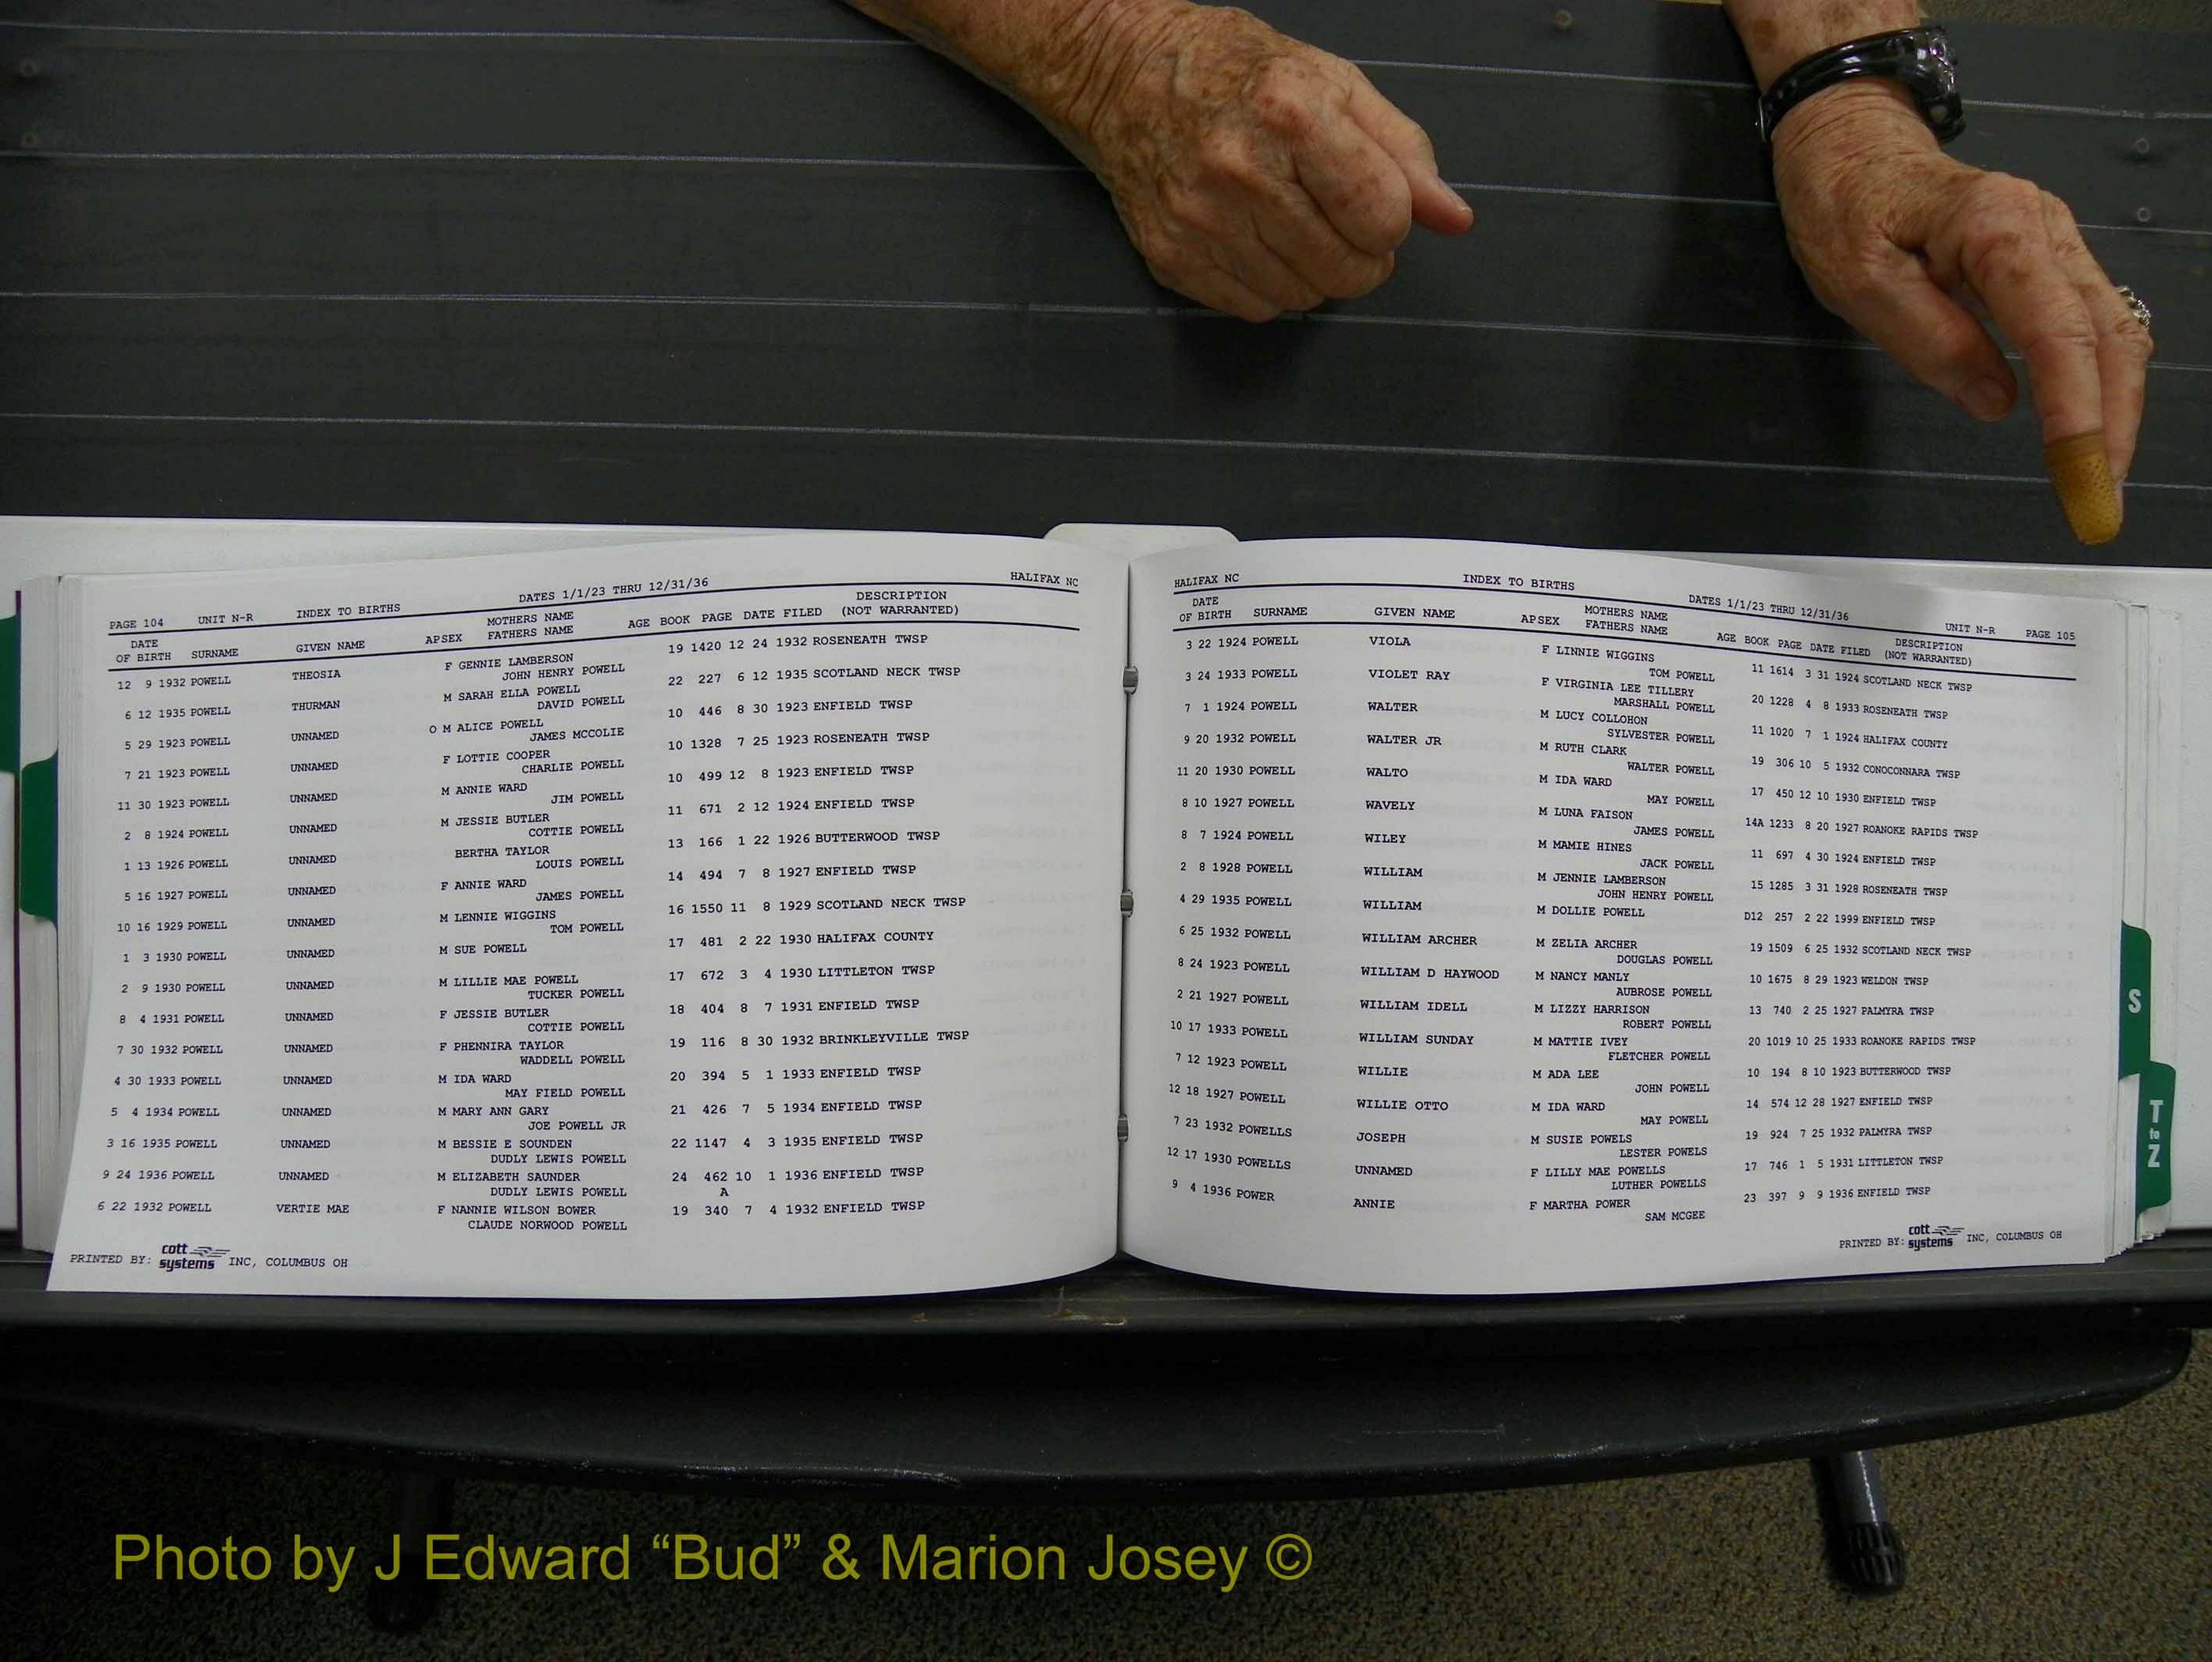 PAGE 104 UNIT N-R INDEX TO BIRTHS DATES 1/1/23 THRU 12/31/36 HALIFAX NC
DATE OF BIRTH SURNAME GIVEN NAME APSEX MOTHERS NAME FATHERS NAME AGE BOOK PAGE DATE FILED DESCRIPTION (NOT WARRANTED)
12 9 1932 POWELL THEOSIA F GENNIE LAMBERSON 19 1420 12 24 1932 ROSENEATH TWSP
JOHN HENRY POWELL
6 12 1935 POWELL THURMAN M SARAH ELLA POWELL 22 227 6 12 1935 SCOTLAND NECK TWSP
DAVID POWELL
5 29 1923 POWELL UNNAMED O M ALICE POWELL 10 446 8 30 1923 ENFIELD TWSP
JAMES MCCOLIE
7 21 1923 POWELL UNNAMED F LOTTIE COOPER 10 1328 7 25 1923 ROSENEATH TWSP
CHARLIE POWELL
11 30 1923 POWELL UNNAMED M ANNIE WARD 10 499 12 8 1923 ENFIELD TWSP
JIM POWELL
2 8 1924 POWELL UNNAMED M JESSIE BUTLER 11 671 2 12 1924 ENFIELD TWSP
COTTIE POWELL
1 13 1926 POWELL UNNAMED BERTHA TAYLOR 13 166 1 22 1926 BUTTERWOOD TWSP
LOUIS POWELL
5 16 1927 POWELL UNNAMED F ANNIE WARD 14 494 7 8 1927 ENFIELD TWSP
JAMES POWELL
10 16 1929 POWELL UNNAMED M LENNIE WIGGINS 16 1550 11 8 1929 SCOTLAND NECK TWSP
TOM POWELL
1 3 1930 POWELL UNNAMED M SUE POWELL 17 481 2 22 1930 HALIFAX COUNTY
2 9 1930 POWELL UNNAMED M LILLIE MAE POWELL 17 672 3 4 1930 LITTLETON TWSP
TUCKER POWELL
8 4 1931 POWELL UNNAMED F JESSIE BUTLER 18 404 8 7 1931 ENFIELD TWSP
COTTIE POWELL
7 30 1932 POWELL UNNAMED F PHENNIRA TAYLOR 19 116 8 30 1932 BRINKLEYVILLE TWSP
WADDELL POWELL
4 30 1933 POWELL UNNAMED M IDA WARD 20 394 5 1 1933 ENFIELD TWSP
MAY FIELD POWELL
5 4 1934 POWELL UNNAMED M MARY ANN GARY 21 426 7 5 1934 ENFIELD TWSP
JOE POWELL JR
3 16 1935 POWELL UNNAMED M BESSIE E SOUNDEN 22 1147 4 3 1935 ENFIELD TWSP
DUDLY LEWIS POWELL
9 24 1936 POWELL UNNAMED M ELIZABETH SAUNDER 24 462 10 1 1936 ENFIELD TWSP
DUDLY LEWIS POWELL A
6 22 1932 POWELL VERTIE MAE F NANNIE WILSON BOWER 19 340 7 4 1932 ENFIELD TWSP
CLAUDE NORWOOD POWELL
PRINTED BY: cott systems INC, COLUMBUS OH
HALIFAX NC INDEX TO BIRTHS DATES 1/1/23 THRU 12/31/36 UNIT N-R PAGE 105
DATE OF BIRTH SURNAME GIVEN NAME APSEX MOTHERS NAME FATHERS NAME AGE BOOK PAGE DATE FILED DESCRIPTION (NOT WARRANTED)
3 22 1924 POWELL VIOLA F LINNIE WIGGINS 11 1614 3 31 1924 SCOTLAND NECK TWSP
TOM POWELL
3 24 1933 POWELL VIOLET RAY F VIRGINIA LEE TILLERY 20 1228 4 8 1933 ROSENEATH TWSP
MARSHALL POWELL
7 1 1924 POWELL WALTER M LUCY COLLOHON 11 1020 7 1 1924 HALIFAX COUNTY
SYLVESTER POWELL
9 20 1932 POWELL WALTER JR M RUTH CLARK 19 306 10 5 1932 CONOCONNARA TWSP
WALTER POWELL
11 20 1930 POWELL WALTO M IDA WARD 17 450 12 10 1930 ENFIELD TWSP
MAY POWELL
8 10 1927 POWELL WAVELY M LUNA FAISON 14A 1233 8 20 1927 ROANOKE RAPIDS TWSP
JAMES POWELL
8 7 1924 POWELL WILEY M MAMIE HINES 11 697 4 30 1924 ENFIELD TWSP
JACK POWELL
2 8 1928 POWELL WILLIAM M JENNIE LAMBERSON 15 1285 3 31 1928 ROSENEATH TWSP
JOHN HENRY POWELL
4 29 1935 POWELL WILLIAM M DOLLIE POWELL D12 257 2 22 1999 ENFIELD TWSP
6 25 1932 POWELL WILLIAM ARCHER M ZELIA ARCHER 19 1509 6 25 1932 SCOTLAND NECK TWSP
DOUGLAS POWELL
8 24 1923 POWELL WILLIAM D HAYWOOD M NANCY MANLY 10 1675 8 29 1923 WELDON TWSP
AUBROSE POWELL
2 21 1927 POWELL WILLIAM IDELL M LIZZY HARRISON 13 740 2 25 1927 PALMYRA TWSP
ROBERT POWELL
10 17 1933 POWELL WILLIAM SUNDAY M MATTIE IVEY 20 1019 10 25 1933 ROANOKE RAPIDS TWSP
FLETCHER POWELL
7 12 1923 POWELL WILLIE M ADA LEE 10 194 8 10 1923 BUTTERWOOD TWSP
JOHN POWELL
12 18 1927 POWELL WILLIE OTTO M IDA WARD 14 574 12 28 1927 ENFIELD TWSP
MAY POWELL
7 23 1932 POWELLS JOSEPH M SUSIE POWELS 19 924 7 25 1932 PALMYRA TWSP
LESTER POWELS
12 17 1930 POWELLS UNNAMED F LILLY MAE POWELLS 17 746 1 5 1931 LITTLETON TWSP
LUTHER POWELLS
9 4 1936 POWER ANNIE F MARTHA POWER 23 397 9 9 1936 ENFIELD TWSP
SAM MCGEE
PRINTED BY: cott systems INC, COLUMBUS OH
S
T to Z
Photo by J Edward “Bud” & Marion Josey ©